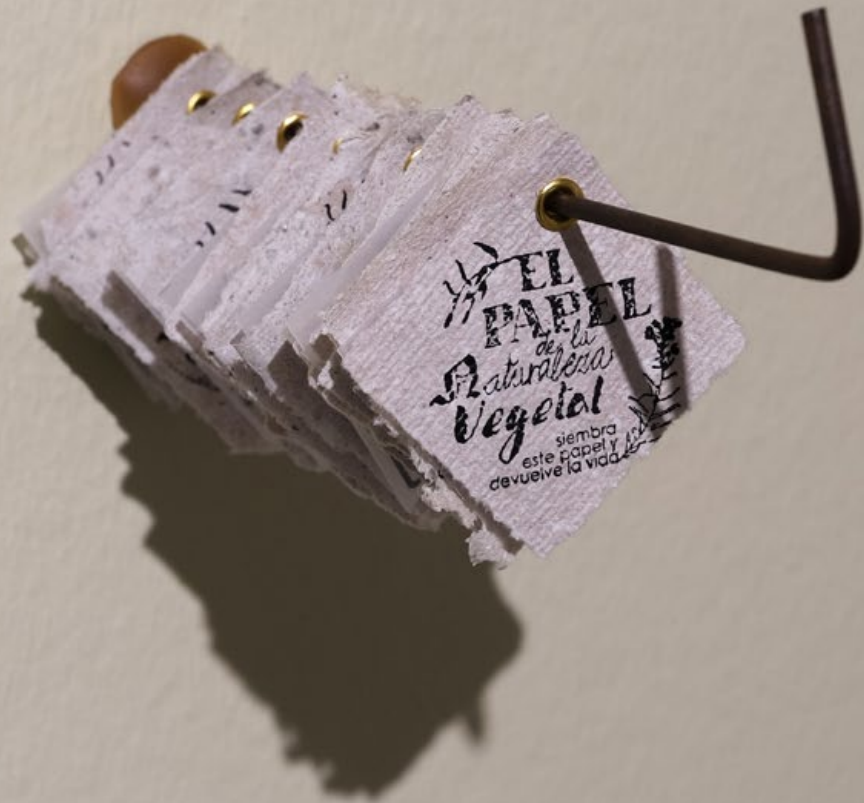 EL
PAPEL
de la
Naturaleza
Vegetal
siembra
este papel y
devuelve la vida